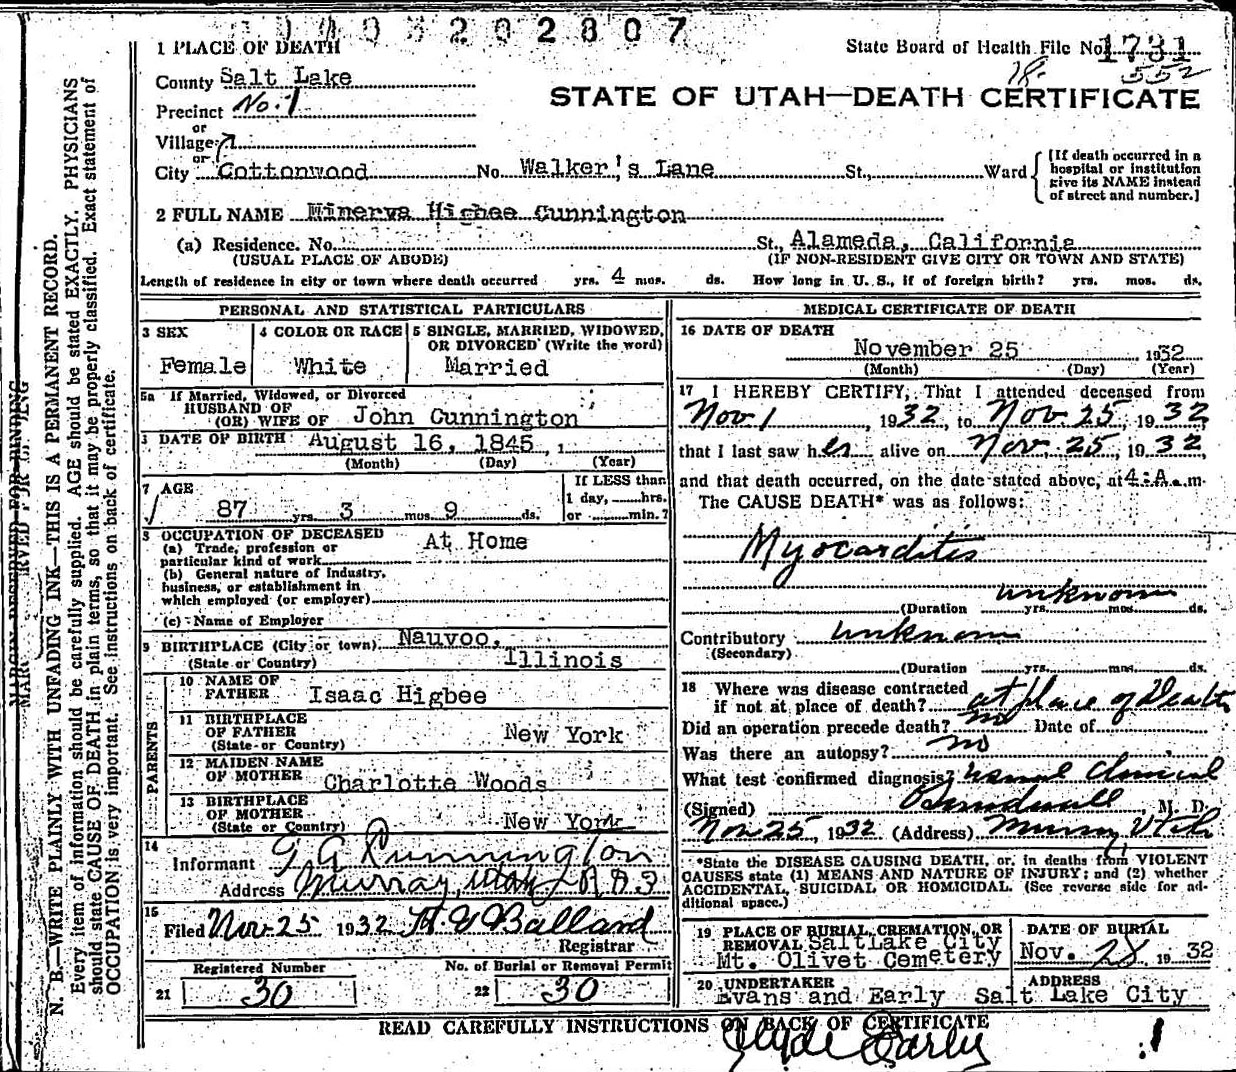 0003202807
1 PLACE OF DEATH
State Board of Health File No. 1731
18. 552
County Salt Lake
STATE OF UTAH—DEATH CERTIFICATE
Precinct No. 1
or
Village
or
City Cottonwood No. Walker's Lane St., Ward
[If death occurred in a hospital or institution give its NAME instead of street and number.]
2 FULL NAME Minerva Higbee Cunnington
(a) Residence. No. St., Alameda, California
(USUAL PLACE OF ABODE) (IF NON-RESIDENT GIVE CITY OR TOWN AND STATE)
Length of residence in city or town where death occurred yrs. 4 mos. ds. How long in U. S., if of foreign birth? yrs. mos. ds.
PERSONAL AND STATISTICAL PARTICULARS
3 SEX
Female
4 COLOR OR RACE
White
5 SINGLE, MARRIED, WIDOWED,
OR DIVORCED (Write the word)
Married
5a If Married, Widowed, or Divorced
HUSBAND OF
(OR) WIFE OF John Cunnington
DATE OF BIRTH August 16, 1845, 1
(Month) (Day) (Year)
7 AGE
87 yrs. 3 mos. 9 ds.
If LESS than
1 day, hrs.
or min.?
8 OCCUPATION OF DECEASED
(a) Trade, profession or
particular kind of work At Home
(b) General nature of Industry,
business, or establishment in
which employed (or employer)
(c) Name of Employer
9 BIRTHPLACE (City or town) Nauvoo,
(State or Country) Illinois
PARENTS
10 NAME OF
FATHER Isaac Higbee
11 BIRTHPLACE
OF FATHER
(State or Country) New York
12 MAIDEN NAME
OF MOTHER Charlotte Woods
13 BIRTHPLACE
OF MOTHER
(State or Country) New York
14
Informant G A Cunnington
Address Murray, Utah R R 3
15
Filed Nov. 25 1932
Registrar
Registered Number
21 30
No. of Burial or Removal Permit
22 30
MEDICAL CERTIFICATE OF DEATH
16 DATE OF DEATH
November 25 1932
(Month) (Day) (Year)
17 I HEREBY CERTIFY, That I attended deceased from
Nov 1, 1932, to Nov. 25, 1932,
that I last saw her alive on Nov. 25, 1932,
and that death occurred, on the date stated above, at 4:A.m.
The CAUSE DEATH* was as follows:
Myocarditis
unknown
(Duration yrs. mos. ds.
Contributory unknown
(Secondary)
(Duration yrs. mos. ds.
18 Where was disease contracted
if not at place of death? at place of Death
Did an operation precede death? no Date of
Was there an autopsy? no
What test confirmed diagnosis? usual Clinical
(Signed) , M. D.
Nov 25, 1932 (Address) Murray Utah
*State the DISEASE CAUSING DEATH, or, in deaths from VIOLENT
CAUSES state (1) MEANS AND NATURE OF INJURY; and (2) whether
ACCIDENTAL, SUICIDAL OR HOMICIDAL. (See reverse side for ad-
ditional space.)
19 PLACE OF BURIAL, CREMATION, OR
REMOVAL Salt Lake City
Mt. Olivet Cemetery
DATE OF BURIAL
Nov. 28 1932
20 UNDERTAKER
Evans and Early
ADDRESS
Salt Lake City
READ CAREFULLY INSTRUCTIONS ON BACK OF CERTIFICATE
Clyde Early
MARGIN RESERVED FOR BINDING
N. B.—WRITE PLAINLY WITH UNFADING INK—THIS IS A PERMANENT RECORD.
Every item of information should be carefully supplied. AGE should be stated EXACTLY. PHYSICIANS
should state CAUSE OF DEATH in plain terms, so that it may be properly classified. Exact statement of
OCCUPATION is very important. See instructions on back of certificate.